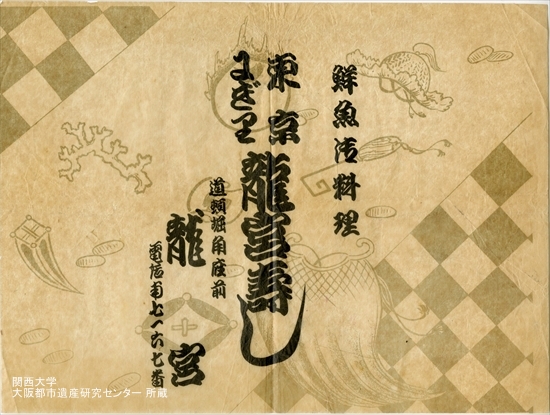 鮮魚御料理
東京
にぎり
龍宮寿し
道頓堀角座前
龍宮
電話南七一六七番
関西大学
大阪都市遺産研究センター 所蔵